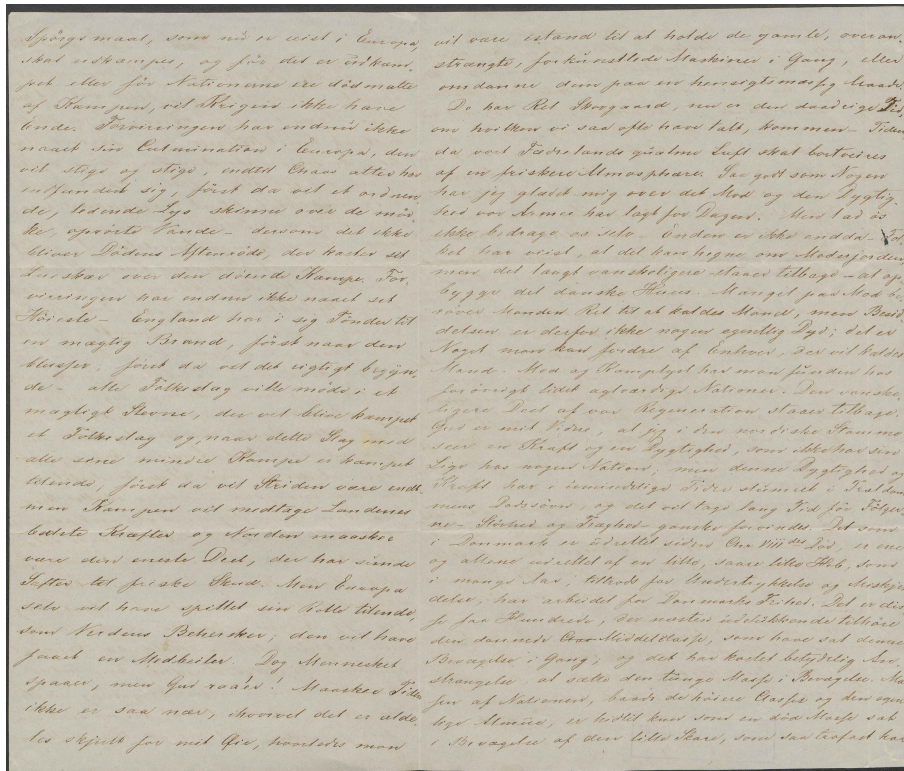 Spörgsmaal, som nu er reist i Europa,
skal udkæmpes, og för det er udkæm-
pet eller för Nationerne ere dödmatte
af Kampen, vil Krigen ikke have
Ende. Forvirringen har endnu ikke
naaet sin Culmination i Europa, den
vil stige og stige, indtil Chaos atter har
indfundet sig, först da vil et ordnen-
de, ledende Lys skinne over de mör-
ke, oprörte Vande – dersom det ikke
bliver Dödens Aftenröde, der kaster sit
skær over den döende Kæmpe. For-
virringen har endnu ikke naaet sit
Höieste – England har i sig Tönder til
en mægtig Brand, först naar den
blusser, först da vil det rigtigt begyn-
de – alle Folkeslag ville möde i et
mægtigt Stevne, der vil blive kæmpet
et Folkeslag og, naar dette Slag med
alle sine mindre Kampe er kæmpet
tilende, först da vil Striden være endt
men Kampen vil medtage Landenes
bedste Kræfter og Norden maaskee
være den eneste Deel, der har sunde
Safter til friske Skud. Men Europa
selv vil have spillet sin Rolle tilende,
som Verdens Behersker; den vil have
faaet en Medbeiler. Dog Mennesket
spaaer, men Gud raaer! Maaskee Tiden
ikke er saa nær, ihvorvel det er alde-
les skjult for mit Öie, hvorledes man
vil være istand til at holde de gamle, overan-
strængte, forkunstlede Maskiner i Gang, eller
omdanne dem paa en hensigtsmæssig Maade.
De har Ret Skovgaard, nu er den daarlige Tid,
om hvilken vi saa ofte have talt, kommen – Tiden
da vort Fædrelands qvalme Luft skal bortveires
af en friskere Atmosphære. Saa godt som Nogen
har jeg glædet mig over det Mod og den Dygtig-
hed vor Armee har lagt for Dagen. Men lad os
ikke bedrage os selv – Enden er ikke endda. Fol-
ket har viist, at det kan hegne om Moderjorden
men det langt vanskeligere staaer tilbage – at op-
bygge det danske Huus. Mangel paa Mod be-
röver Manden Ret til at kaldes Mand, men Besid-
delsen er derfor ikke nogen egentlig Dyd; det er
Noget man kan fordre af Enhver, der vil kaldes
Mand. Mod og Kamplyst har man funden hos
forövrigt lidet agtværdige Nationer. Den vanske-
ligere Deel af vor Regeneration staaer tilbage.
Gud er mit Vidne, at jeg i den nordiske Stamme
seer en Kraft og en Dygtighed, som ikke har sin
Lige hos nogen Nation, men denne Dygtighed og
Kraft har i umindelige Tider slumret i Trældom-
mens Dödssövn, og det vil tage lang Tid för Fölger-
ne – Slövhed og Træghed – ganske forvindes. Det som
i Danmark er udrettet siden Chr VIII des Död, er ene
og allene udrettet af en lille, saare lille Flok, som
i mange Aar, tiltrods for Undertrykkelse og Miskjen-
delse, har arbeidet for Danmarks Frihed. Det er dis-
se faa Hundrede, der næsten udelukkende tilhöre
den dannede Middelclasse, som have sat denne
Bevægelse i Gang, og det har kostet betydelig An-
strengelse at sætte den tunge Masse i Bevægelse. Mas-
sen af Nationen, baade de höiere Classer og den egent-
lige Almue, er hidtil kun som en död Masse sat
i Bevægelse af den lille Skare, som saa trofast har